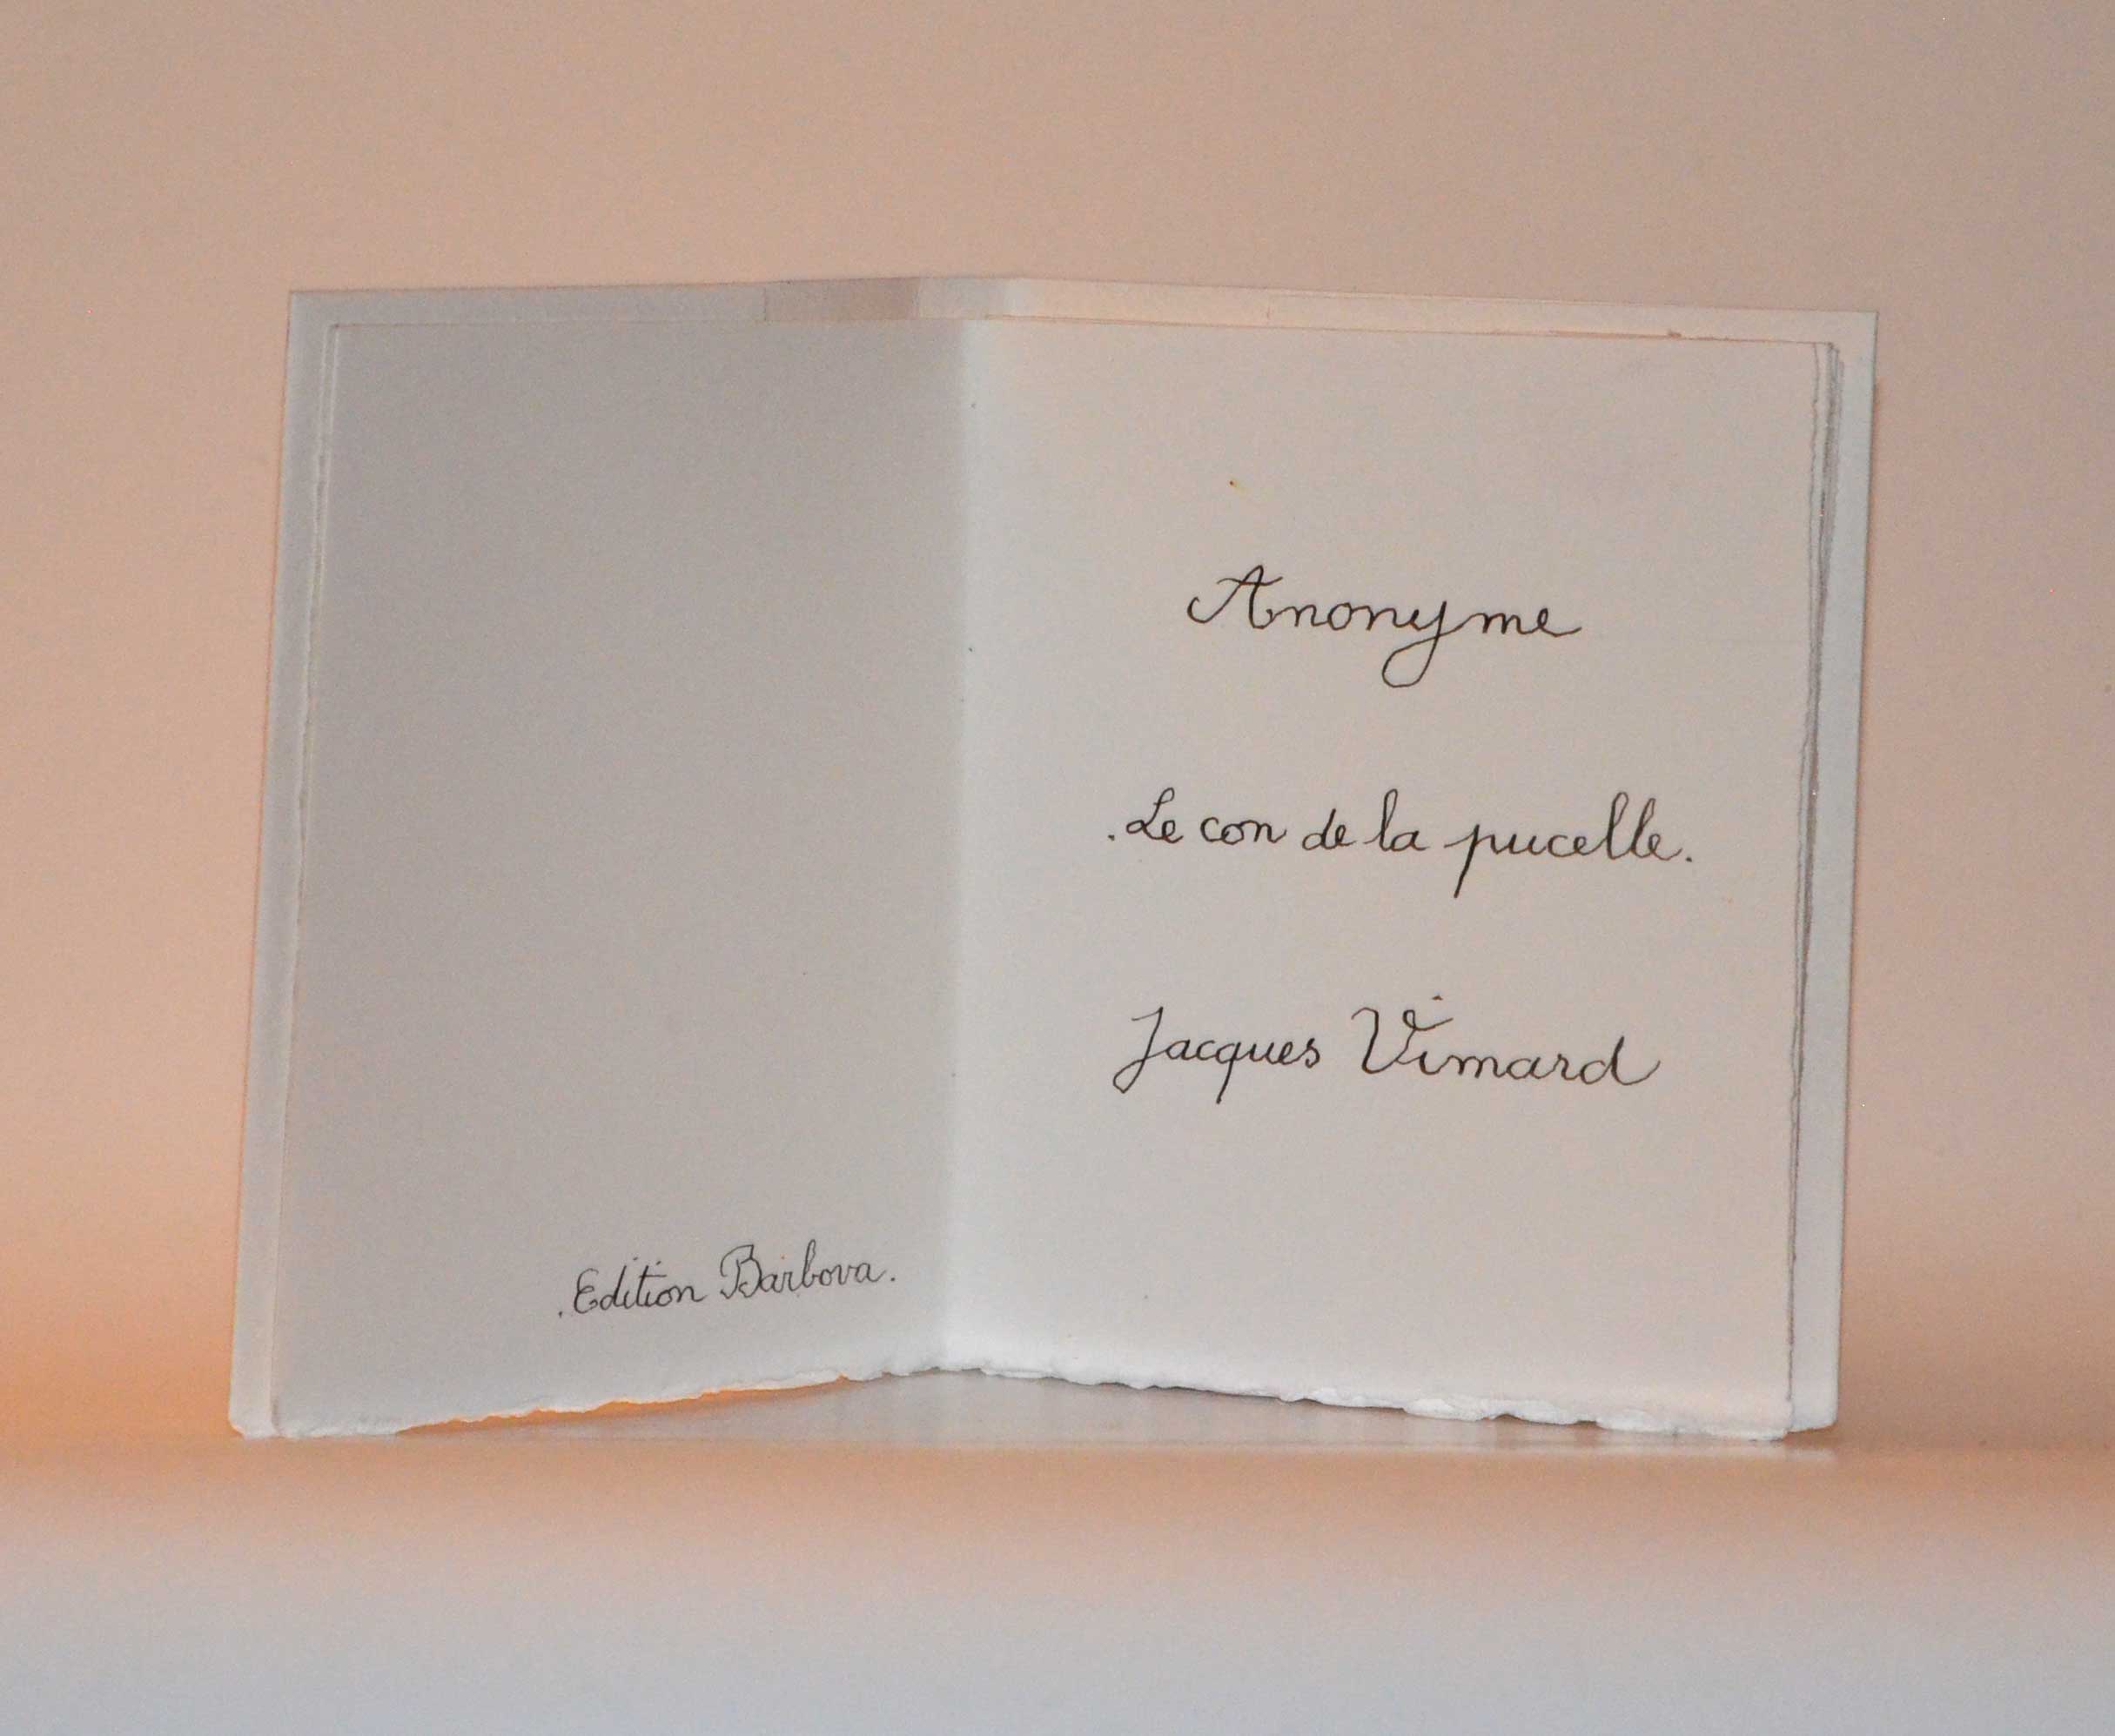 .Edition Barbova.
Anonyme
.Le con de la pucelle.
Jacques Vimard